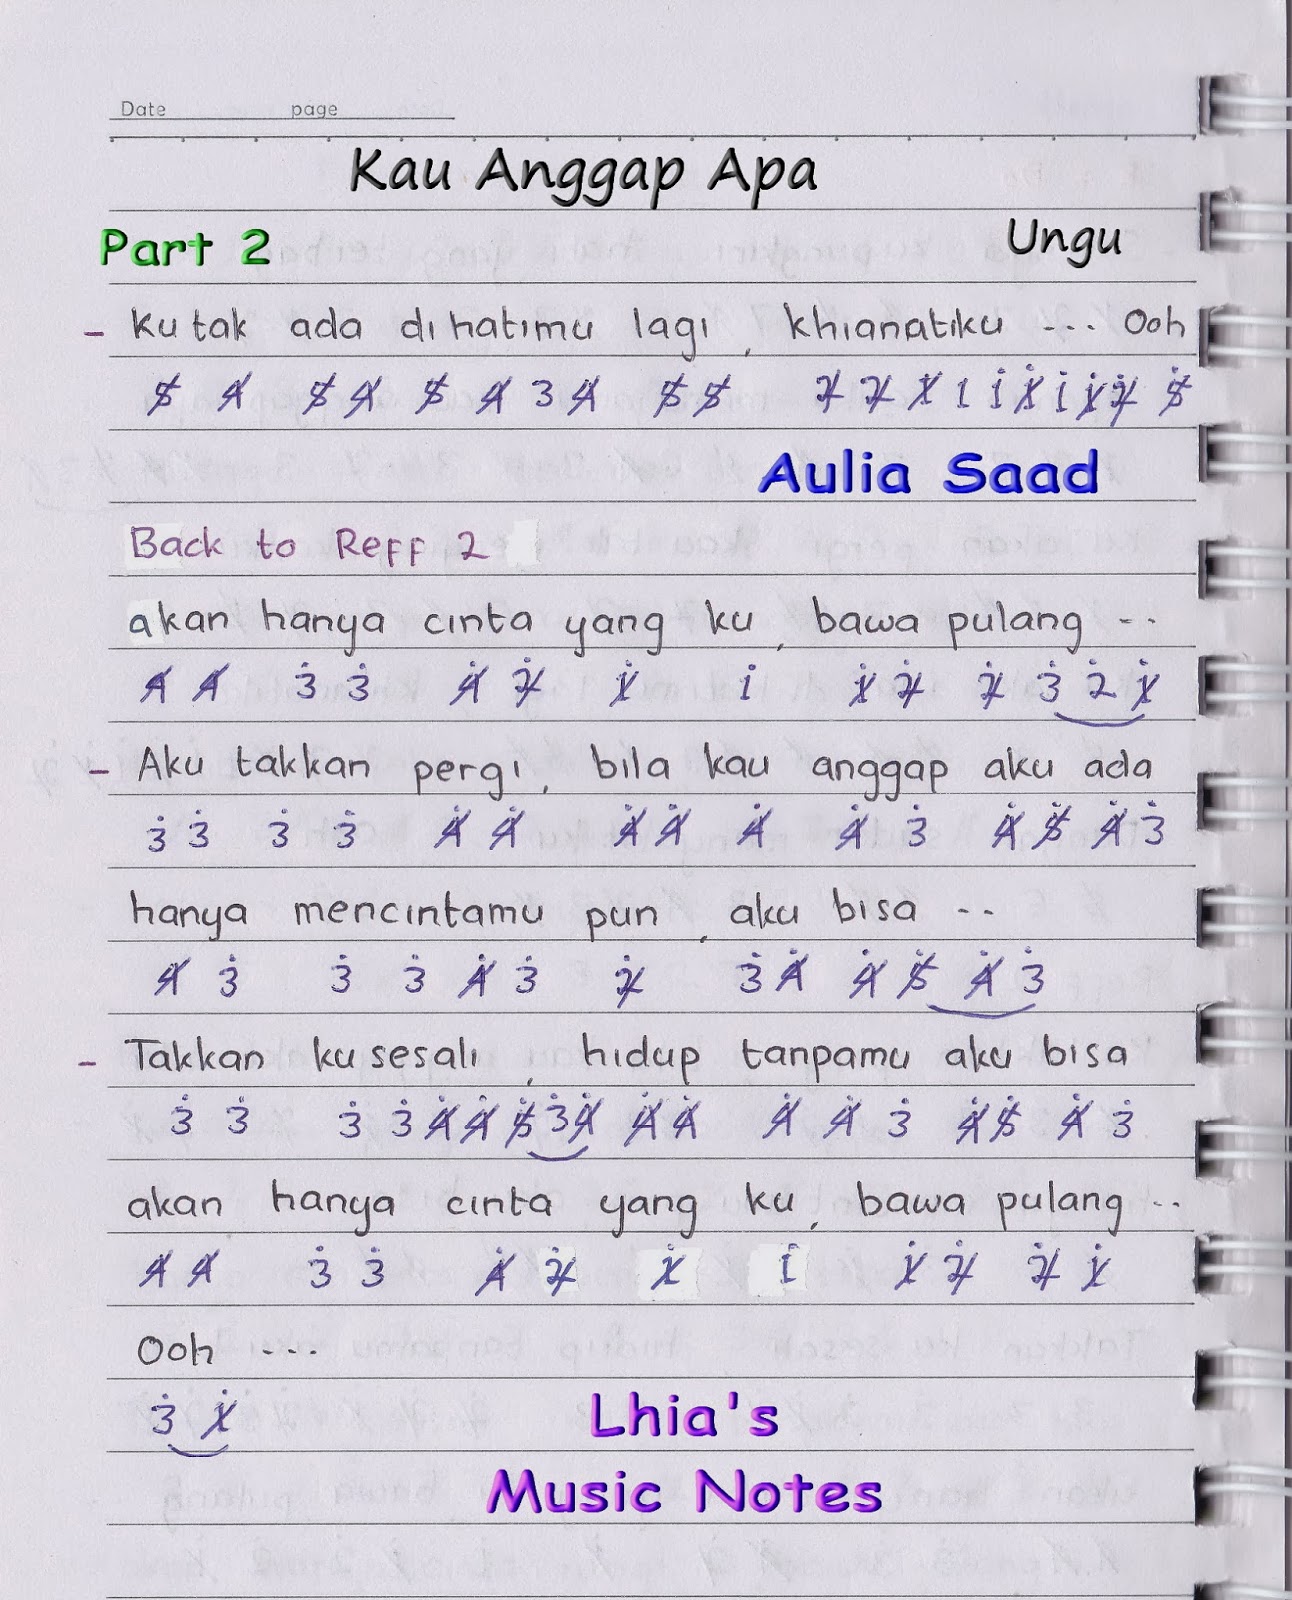 Date page
Kau Anggap Apa
Part 2 Ungu
- Ku tak ada dihatimu lagi, khianatiku ... Ooh
5̸ 4̸ 5̸ 4̸ 5̸ 4̸ 3 4̸ 5̸ 5̸ 2̸ 2̸ 1̸ 1 1̇ 1̸̇ 1̇ 1̸̇ 2̸̇ 5̸̇
Aulia Saad
Back to Reff 2
akan hanya cinta yang ku, bawa pulang --
4̸ 4̸ 3̇ 3̇ 4̸̇ 2̸̇ 1̸̇ 1̇ 1̸̇ 2̸̇ 2̸̇ 3̇ 2̇ 1̸̇
- Aku takkan pergi, bila kau anggap aku ada
3̇ 3̇ 3̇ 3̇ 4̸̇ 4̸̇ 4̸̇ 4̸̇ 4̸̇ 4̸̇ 3̇ 4̸̇ 5̸̇ 4̸̇ 3̇
hanya mencintamu pun, aku bisa --
4̸ 3̇ 3̇ 3̇ 4̸̇ 3̇ 2̸̇ 3̇ 4̸̇ 4̸̇ 5̸̇ 4̸̇ 3̇
- Takkan ku sesali, hidup tanpamu aku bisa
3̇ 3̇ 3̇ 3̇ 4̸̇ 4̸̇ 5̸̇ 3̇ 4̸̇ 4̸̇ 4̸̇ 4̸̇ 4̸̇ 3̇ 4̸̇ 5̸̇ 4̸̇ 3̇
akan hanya cinta yang ku, bawa pulang --
4̸ 4̸ 3̇ 3̇ 4̸̇ 2̸̇ 1̸̇ 1̇ 1̸̇ 2̸̇ 2̸̇ 1̸̇
Ooh ---
3̇ 1̸̇
Lhia's
Music Notes